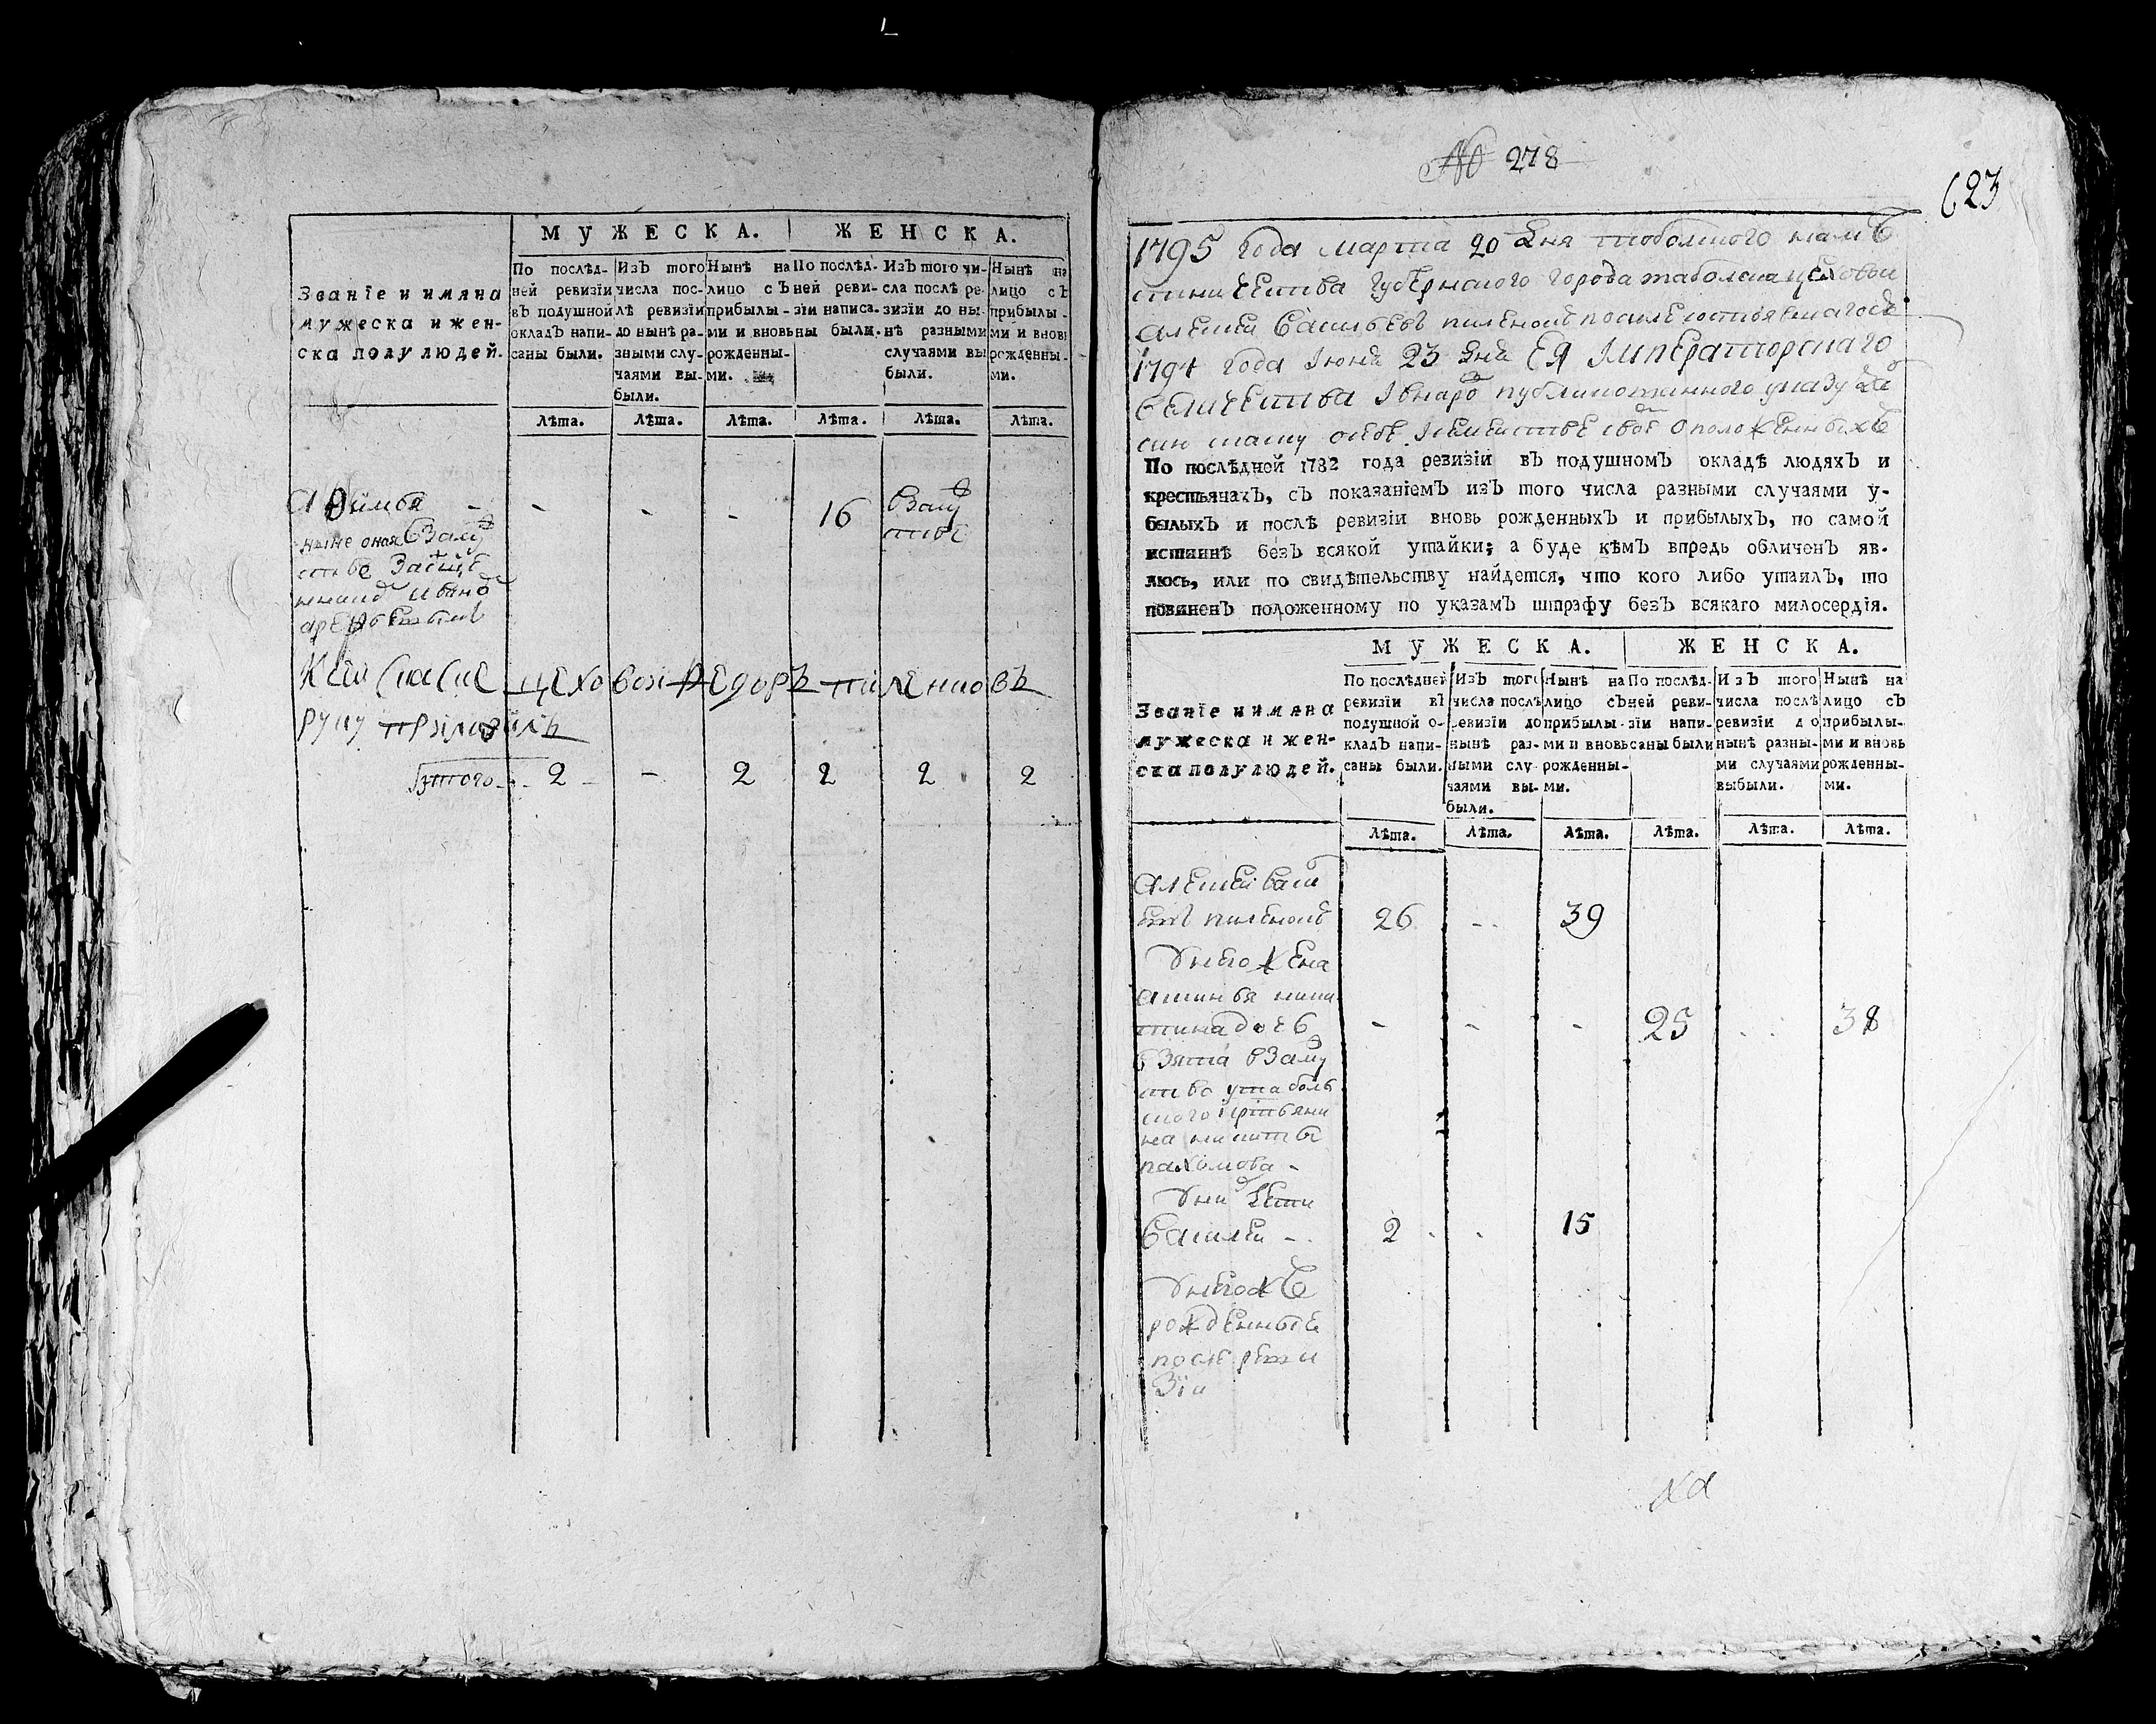 МУЖЕСКА. ЖЕНСКА.
Званїе и имяна мужеска и женска полу людей.
По послѣдней ревизїи въ подушной окладъ написаны были.
Изъ того числа послѣ ревизїи до нынѣ разными случаями выбыли.
Нынѣ на лицо съ прибылыми и вновь рожденными.
По послѣдней ревизїи написаны были.
Изъ того числа послѣ ревизїи до нынѣ разными случаями выбыли.
Нынѣ на лицо съ прибылыми и вновь рожденными.
Лѣта. Лѣта. Лѣта. Лѣта. Лѣта. Лѣта.
Афимья - - - - 16 взаму
ныне оная взаму стве
стве
Иваномъ
К сей скаске цеховой Федоръ Пиленковъ
руку приложилъ
итого 2 - 2 2 2 2
№ 278
623
1795 года марта 20 дня тоболского наме
стничества губернского города таболска цеховыи
алексеи васильевъ пиленковъ
1794 года Июня 23 дня ЕЯ Императорского
величества Iвнаро публикованного указу дал
сию скаску о себе и семействе своем о положенныхъ
По послѣдней 1782 года ревизїи въ подушномъ окладѣ людяхъ и
крестьянахъ, съ показанїемъ изъ того числа разными случаями у-
былыхъ и послѣ ревизїи вновь рожденныхъ и прибылыхъ, по самой
истиннѣ безъ всякой утайки; а буде кѣмъ впредь обличенъ яв-
люсь, или по свидѣтельству найдется, что кого либо утаилъ, то
повиненъ положенному по указамъ штрафу безъ всякаго милосердїя.
МУЖЕСКА. ЖЕНСКА.
Званїе и имяна мужеска и женска полу людей.
По послѣдней ревизїи въ подушной окладъ написаны были.
Изъ того числа послѣ ревизїи до нынѣ разными случаями выбыли.
Нынѣ на лицо съ прибылыми и вновь рожденными.
По послѣдней ревизїи написаны были
Изъ того числа послѣ ревизїи до нынѣ разными случаями выбыли.
Нынѣ на лицо съ прибылыми и вновь рожденными.
Лѣта. Лѣта. Лѣта. Лѣта. Лѣта. Лѣта.
Алексеи васил
евъ пиленковъ 26 - - 39
унего жена
аксинья ники
тина доч - - - 25 - - 38
взята взаму
ство утаболь
ского крстьяни
на никиты
пахомова -
уних дети
Василеи - 2 - - 15
унегож
рожденные
после реви
зїи